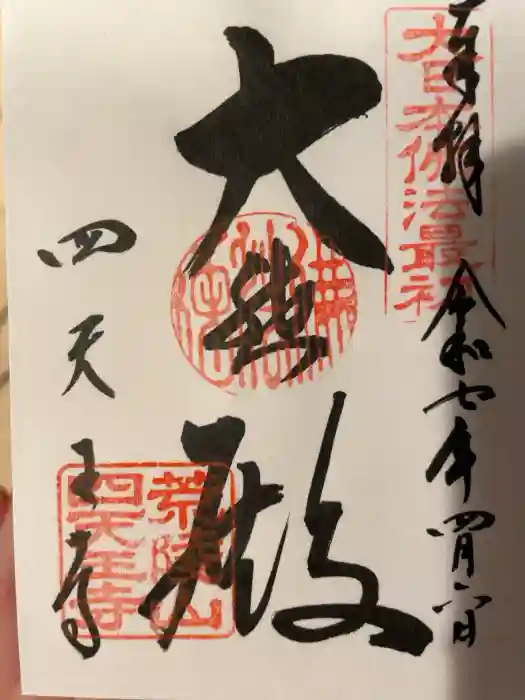 奉拝 令和七年四月六日
大日本佛法最初
大悲殿
四天王寺
荒陵山
四天王寺